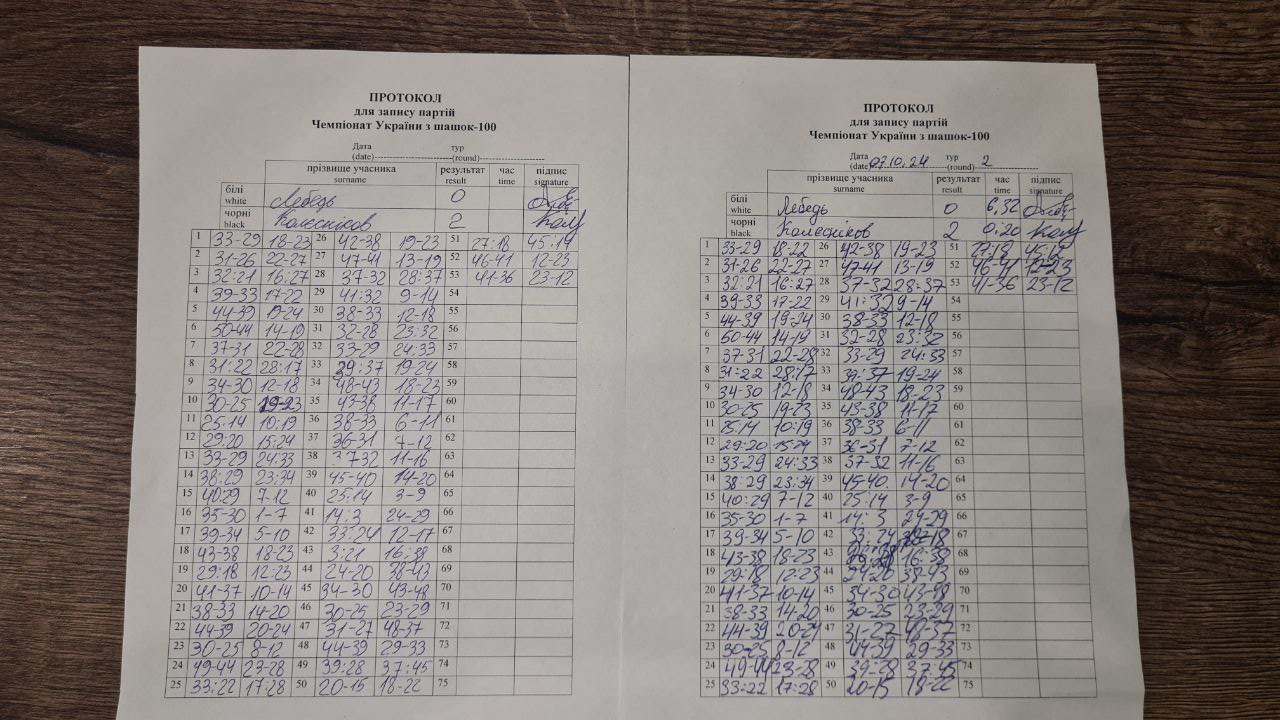 ПРОТОКОЛ
для запису партій
Чемпіонат України з шашок-100
Дата тур
(date) (round)
прізвище учасника результат час підпис
surname result time signature
білі
white Лебедь 0
чорні
black Колєсніков 2
1 33-29 18-23 26 42-38 19-23 51 27:18 45:19
2 31-26 22-27 27 47-41 13-19 52 46-41 12-23
3 32:21 16:27 28 37-32 28:37 53 41-36 23-12
4 39-33 17-22 29 41:32 9-14 54
5 44-39 19-24 30 38-33 12-18 55
6 50-44 14-19 31 32-28 23:32 56
7 37-31 22-28 32 33-29 24:33 57
8 31:22 28:17 33 39:37 19-24 58
9 34-30 12-18 34 48-43 18-23 59
10 30-25 19-23 35 43-38 11-17 60
11 25:14 10:19 36 38-33 6-11 61
12 29:20 15:24 37 36-31 7-12 62
13 33-29 24:33 38 37-32 11-16 63
14 38:29 23:34 39 45-40 14-20 64
15 40:29 7-12 40 25:14 3-9 65
16 35-30 1-7 41 14:3 24-29 66
17 39-34 5-10 42 33:24 12-17 67
18 43-38 18-23 43 3:21 16:38 68
19 29:18 12-23 44 24-20 38-43 69
20 41-37 10-14 45 34-30 43-48 70
21 38-33 14-20 46 30-25 23-29 71
22 44-39 20-24 47 31-27 48-37 72
23 30-25 8-12 48 44-39 29-33 73
24 49-44 23-28 49 39:28 37:45 74
25 33:22 17:28 50 20-15 18-22 75
ПРОТОКОЛ
для запису партій
Чемпіонат України з шашок-100
Дата тур
(date) 07.10.24 (round) 2
прізвище учасника результат час підпис
surname result time signature
білі
white Лебедь 0 6,32
чорні
black Колєсніков 2 0,20
1 33-29 18-22 26 42-38 19-23 51 27:18 45:19
2 31-26 22-27 27 47-41 13-19 52 46-41 12-23
3 32:21 16:27 28 37-32 28:37 53 41-36 23-12
4 39-33 17-22 29 41:32 9-14 54
5 44-39 19-24 30 38-33 12-18 55
6 50-44 14-19 31 32-28 23:32 56
7 37-31 22-28 32 33-29 24:33 57
8 31:22 28:17 33 39:37 19-24 58
9 34-30 12-18 34 48-43 18-23 59
10 30-25 19-23 35 43-38 11-17 60
11 25:14 10:19 36 38-33 6-11 61
12 29:20 15:24 37 36-31 7-12 62
13 33-29 24:33 38 37-32 11-16 63
14 38:29 23:34 39 45-40 14-20 64
15 40:29 7-12 40 25:14 3-9 65
16 35-30 1-7 41 14:3 24-29 66
17 39-34 5-10 42 33:24 67
18 43-38 18-23 43 16:38 68
19 29:18 12:23 44 24-20 38-43 69
20 41-37 10-14 45 34-30 43-48 70
21 38-33 14-20 46 30-25 23-29 71
22 44-39 20-24 47 31-27 48-37 72
23 30-25 8-12 48 44-39 29-33 73
24 49-44 23-28 49 39:28 37:45 74
25 33:22 17:28 50 20-15 18-22 75